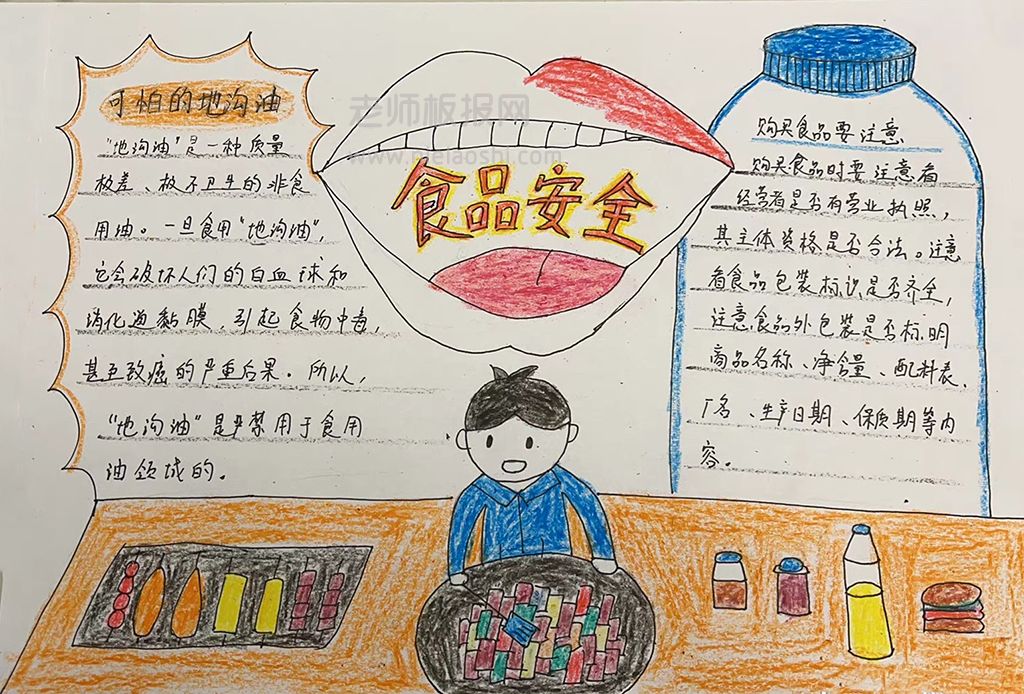 可怕的地沟油
"地沟油"是一种质量
极差、极不卫生的非食
用油。一旦食用"地沟油",
它会破坏人们的白血球和
消化道黏膜,引起食物中毒,
甚至致癌的严重后果。所以,
"地沟油"是严禁用于食用
油领域的。
老师板报网
www.meiaoshi.com
食品安全
购买食品要注意
购买食品时要注意看
经营者是否有营业执照,
其主体资格是否合法。注意
看食品包装标识是否齐全,
注意食品外包装是否标明
商品名称、净含量、配料表、
厂名、生产日期、保质期等内
容。